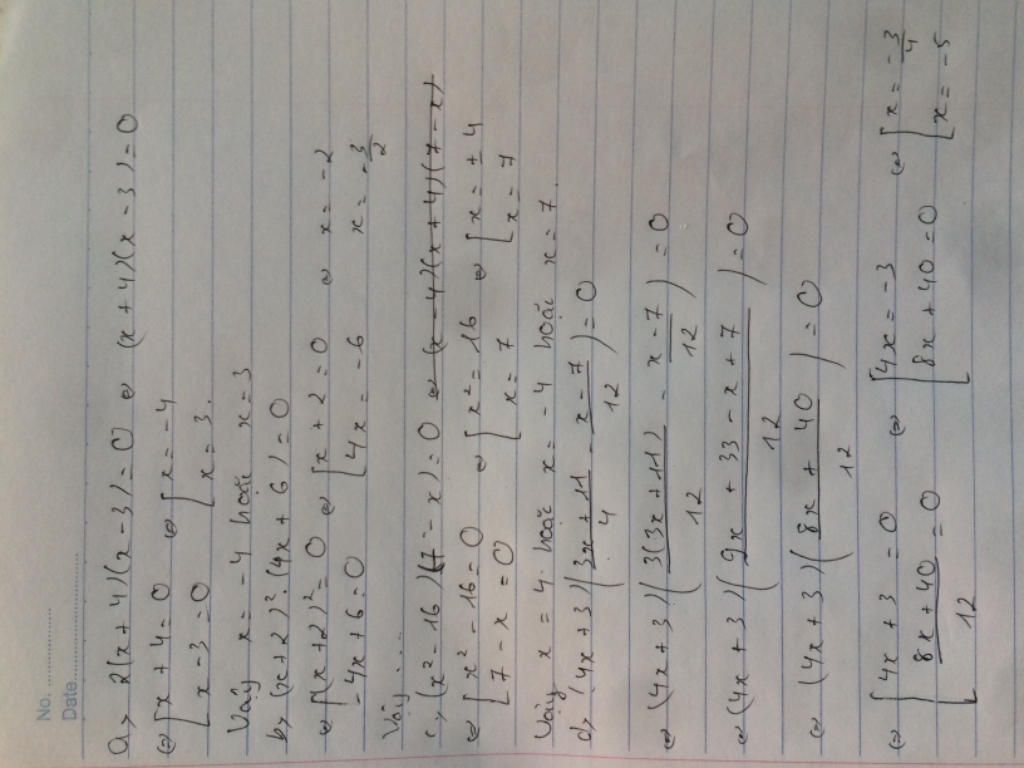 No. ............
Date ......................
a, 2(x + 4)(x - 3) = 0 ⇔ (x + 4)(x - 3) = 0
⇔ [x + 4 = 0 ⇔ [x = -4
[x - 3 = 0 [x = 3.
Vậy x = -4 hoặc x = 3
b, (x+2)². (4x + 6) = 0
⇔ [(x+2)² = 0 ⇔ [x + 2 = 0 ⇔ x = -2
[4x + 6 = 0 [4x = -6 x = -3/2
Vậy ...
c, (x² - 16)(7 - x) = 0 ⇔ (x - 4)(x + 4)(7 - x)
⇔ [x² - 16 = 0 ⇔ [x² = 16 ⇔ [x = ± 4
[7 - x = 0 [x = 7 [x = 7
Vậy x = 4 hoặc x = -4 hoặc x = 7.
d, (4x + 3)((3x + 11)/4 - (x - 7)/12) = 0
⇔ (4x + 3)(3(3x + 11)/12 - (x - 7)/12) = 0
⇔ (4x + 3)((9x + 33 - x + 7)/12) = 0
⇔ (4x + 3)((8x + 40)/12) = 0
⇔ [4x + 3 = 0 ⇔ [4x = -3 ⇔ [x = -3/4
[(8x + 40)/12 = 0 [8x + 40 = 0 [x = -5